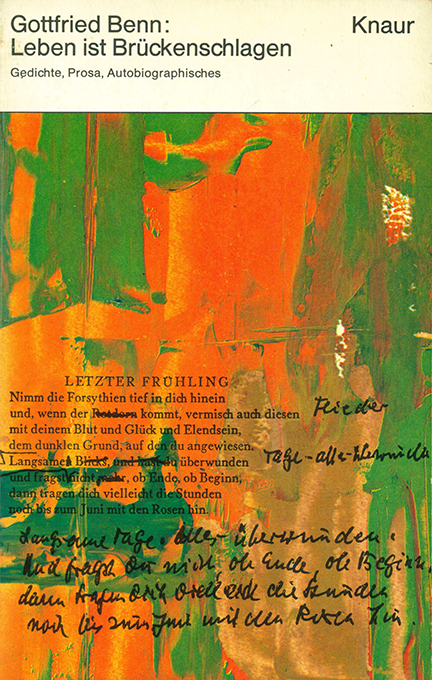 Gottfried Benn: Knaur
Leben ist Brückenschlagen
Gedichte, Prosa, Autobiographisches
LETZTER FRÜHLING
Nimm die Forsythien tief in dich hinein
und, wenn der Rotdorn kommt, vermisch auch diesen Flieder
mit deinem Blut und Glück und Elendsein,
dem dunklen Grund, auf den du angewiesen.
Langsamen Blicks, und hast du überwunden Tage - alles überwunden
und fragst nicht mehr, ob Ende, ob Beginn,
dann tragen dich vielleicht die Stunden
noch bis zum Juni mit den Rosen hin.
Langsame Tage. Alles überwunden.
Und fragst Du nicht, ob Ende, ob Beginn,
dann tragen Dich die Stunden
noch bis zum Juni mit den Rosen hin.